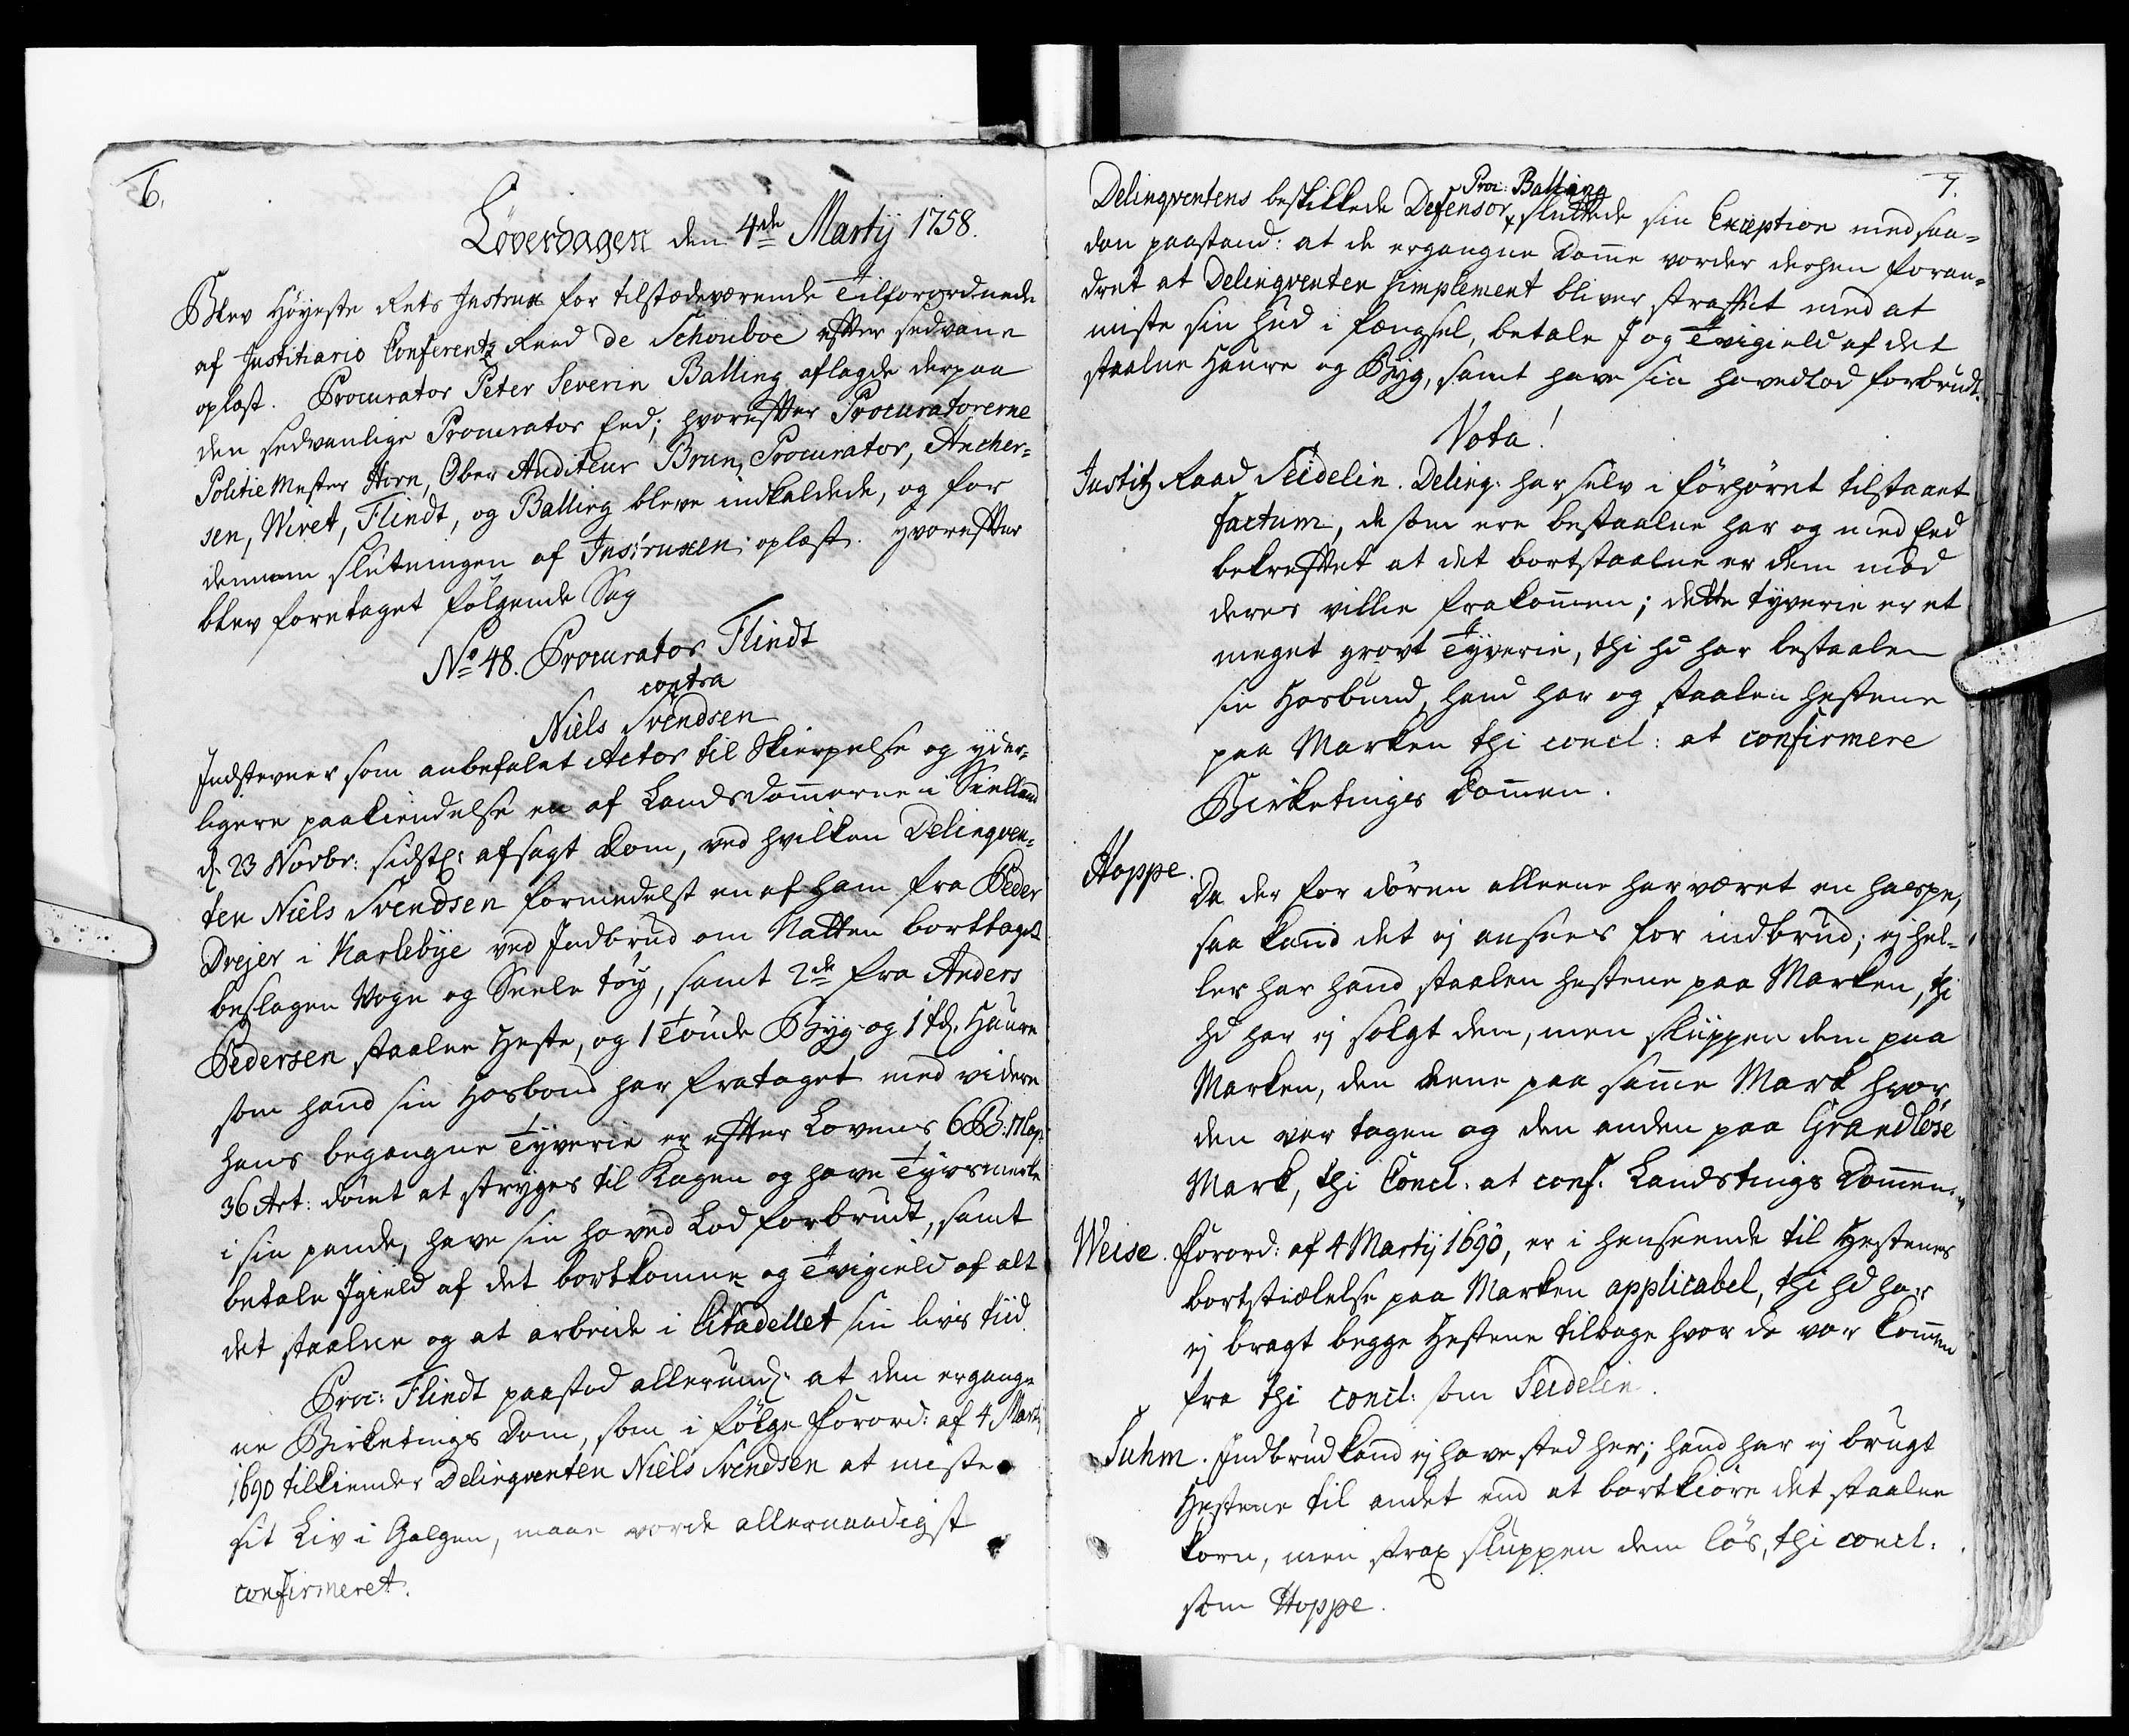 6.
Løverdagen den 4de Martij 1758.
Blev Høyeste Rets Instrux for tilstædeværende Tilforordnede
af Justitiario Conferentz Raad de Schouboe efter sedvane
oplæst. Procurator Peter Severin Balling aflagde derpaa
den sedvanlige Procurator Eed; hvorefter Procuratorerne
Politie Mester Horn, Ober Auditeur Brun, Procurator, Ancher-
sen, Wivet, Flindt, og Balling bleve indkaldede, og for
dennem slutningen af Instruxen oplæst. hvorefter
blev foretaget følgende Sag
No 48. Procurator Flindt
contra
Niels Svendsen
Indstevner som anbefalet Actor til Skierpelse og yder-
ligere paakiendelse en af Landsdommerne i Sielland
d. 23 Novbr: sidstl: afsagt Dom, ved hvilken Delinqven-
ten Niels Svendsen formedelst en af ham fra Peder
Drejer i Karlebye ved Indbrud om Natten borttaget
beslagen Vogn og Seele tøy, samt 2de fra Anders
Pedersen staalne Heste, og 1 Tønde Byg og 1 td. Haure
som hand sin Hosbond har frataget med videre
hans begangne Tyverie er efter Lovens 6 B: 17 Cap:
36 Art: dømt at stryges til Kagen og have Tyvsmerke
i sin pande, have sin hoved Lod forbrudt, samt
betale Igield af det bortkomne og Tvigield af alt
det staalne og at arbeide i Citadellet sin livs tiid.
Proc: Flindt paastod allerund: at den ergang-
ne Birketings Dom, som i følge Forord: af 4 Martij
1690 tilkiender Delinqventen Niels Svendsen at miste
sit Liv i Galgen, maae vorde allernaadigst
confirmeret.
7.
Proc: Balling
Delinqventens beskikkede Defensor sluttede sin Exception med saa-
dan paastand: at de ergangne Domme vorder derhen foran-
dret at Delinqventen simplement bliver straffet med at
miste sin Hud i fængsel, betale I og Tvigield af det
staalne Haure og Byg, samt have sin hovedlod forbrudt.
Vota!
Justitz Raad Seidelin. Delinq: har selv i forhøret tilstaaet
factum, de som ere bestaalne har og med Eed
bekreftet at det bortstaalne er dem mod
deres villie frakommen; dette tyverie er et
meget grovt Tyverie, thi hd har bestaalen
sin Hosbund, hand har og staalen hestene
paa Marken thi concl: at confirmere
Birketings Dommen.
Hoppe.
Da der for dören alleene har været en haspe,
saa kand det ej ansees for indbrud; ej hel-
ler har hand staalen hestene paa Marken, thi
hd har ej solgt dem, men sluppen dem paa
Marken, den eene paa samme Mark hvor
den var tagen og den anden paa Grandløse
Mark, thi Concl. at conf. Landstings Dommen.
Weise. Forord: af 4 Martij 1690, er i henseende til Hestenes
bortstiælelse paa Marken applicabel, thi hd har
ej bragt begge Hestene tilbage hvor de var kommen
fra thi concl: som Seidelin.
Suhm. Indbrud kand ej have sted her; hand har ej brugt
Hestene til andet end at bortkiøre det staalne
korn, men strax sluppen dem løs, thi concl:
som Hoppe.